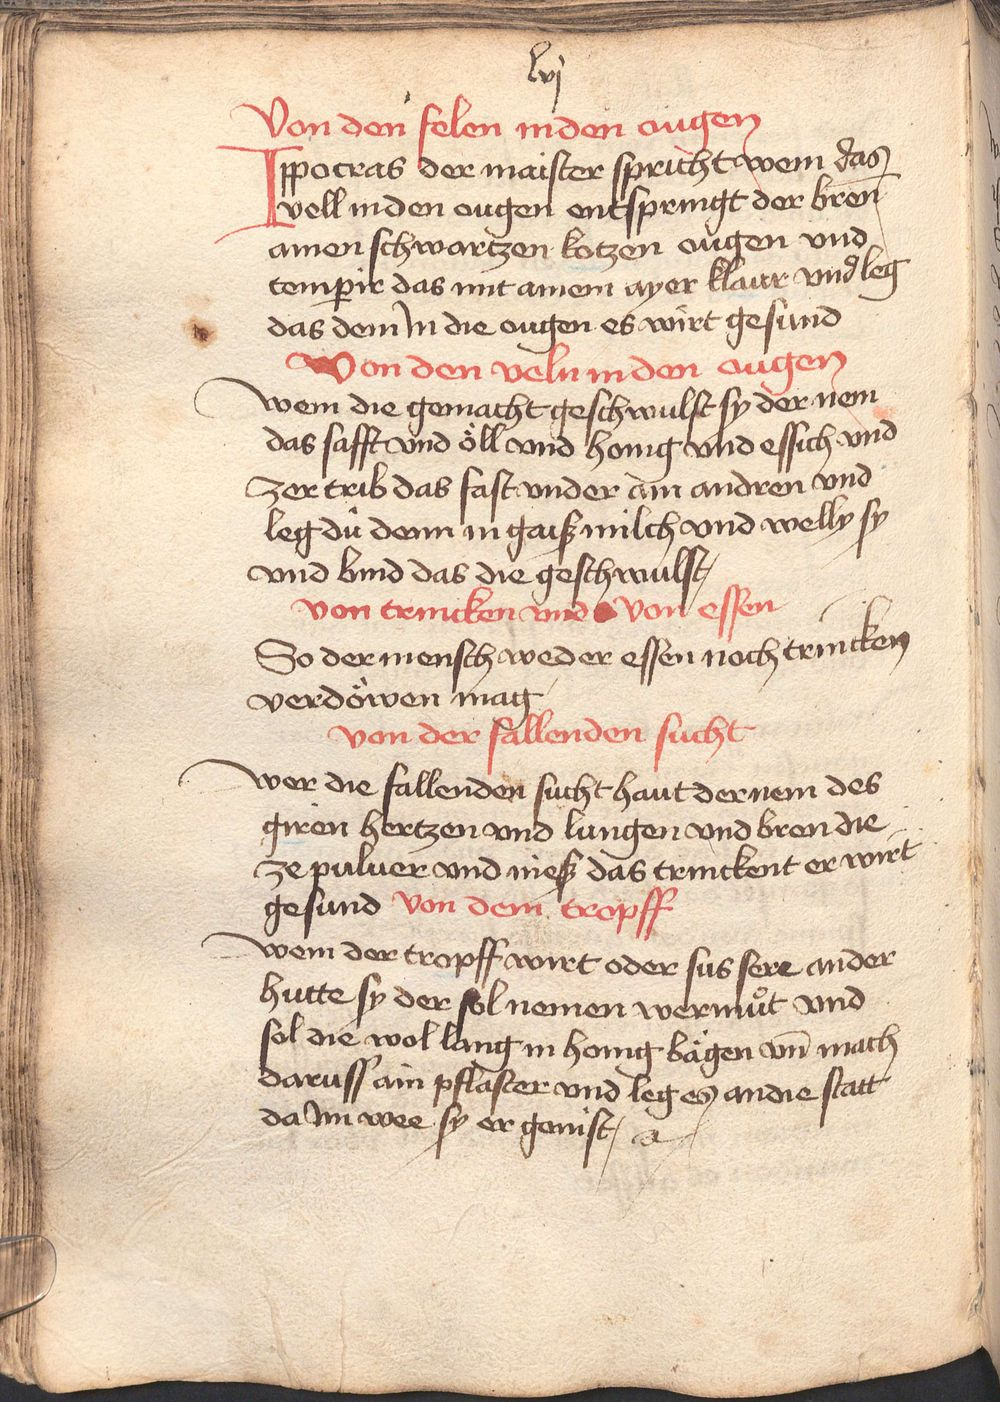 lvj
Von den felen in den ougen
Ippocras der maister spricht wem das
vell in den ougen entspringt der bren
ainen schwartzen kotzen ougen vnd
temperir das mit ainem ayer klaur vnd leg
das dem In die ougen es wirt gesund
Von den veln in den ougen
wem die gemacht geschwulst sy der nem
das safft vnd öll vnd honig vnd essich vnd
zertrib das fast vnder ain andren vnd
leg du denn in gaiß milch vnd welly sy
vnd bind das die geschwulst
von trincken vnd von essen
So der mensch weder essen noch trincken
verdöwen mag
von der fallenden sucht
wer die fallenden sucht haut der nem des
giren hertzen vnd lungen vnd bren die
ze puluer vnd nieß das trinckent er wirt
gesund von dem tropff
wem der tropff wirt oder sus sere ander
hutte sy der sol nemen wermůt vnd
sol die wol lang in honig bägen vn̄ mach
daruss ain pflaster vnd leg es an die statt
da Im wee sy er genist